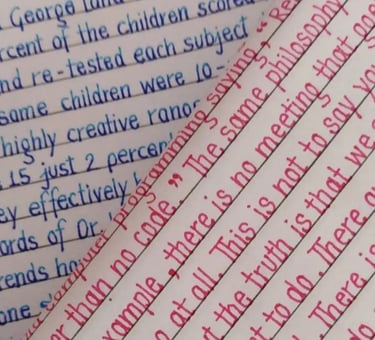 George
rcent of the children scored
nd re-tested each subject
same children were 10-
highly creative range
15 just 2 percent
ey effectively
ords of Dr.
rends
one
computer programming saying, "
or than no code." The same philosophy
xample, there is no meeting that
at all. This is not to say yo
t the truth is that we
t to do. There a
There is